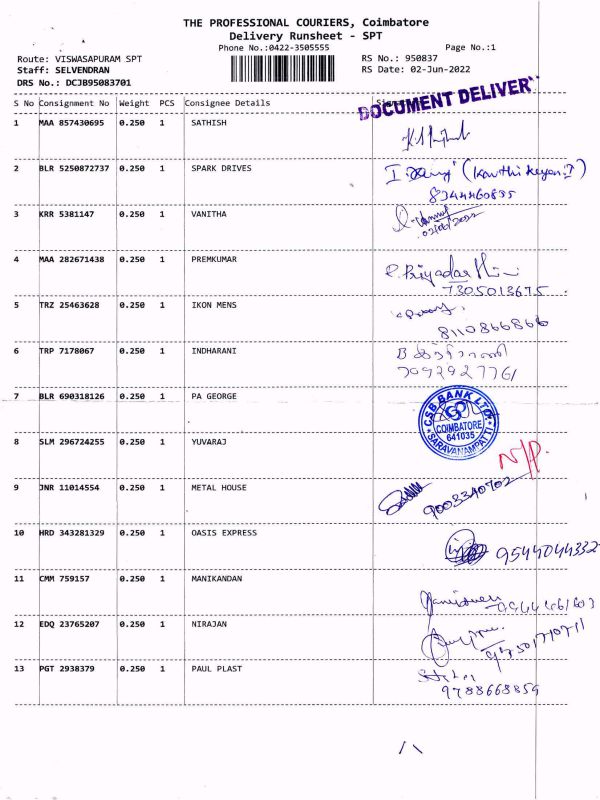 THE PROFESSIONAL COURIERS, Coimbatore
Delivery Runsheet - SPT
Phone No.:0422-3505555
Page No.:1
Route: VISWASAPURAM SPT
RS No.: 950837
Staff: SELVENDRAN
RS Date: 02-Jun-2022
DRS No.: DCJB95083701
DOCUMENT DELIVER
S No Consignment No Weight PCS Consignee Details
1 MAA 857430695 0.250 1 SATHISH
2 BLR 5250872737 0.250 1 SPARK DRIVES
(Karthikeyan.I)
8344460835
3 KRR 5381147 0.250 1 VANITHA
02/06/2022
4 MAA 282671438 0.250 1 PREMKUMAR
P. Priyadarshini
7305013675
5 TRZ 25463628 0.250 1 IKON MENS
8110866866
6 TRP 7178067 0.250 1 INDHARANI
7092927761
7 BLR 690318126 0.250 1 PA GEORGE
CSB BANK LTD.
COIMBATORE
641035
SARAVANAMPATTI
8 SLM 296724255 0.250 1 YUVARAJ
N/P.
9 JNR 11014554 0.250 1 METAL HOUSE
9003340702
10 HRD 343281329 0.250 1 OASIS EXPRESS
9544044332
11 CMM 759157 0.250 1 MANIKANDAN
12 EDQ 23765207 0.250 1 NIRAJAN
13 PGT 2938379 0.250 1 PAUL PLAST
9788668859